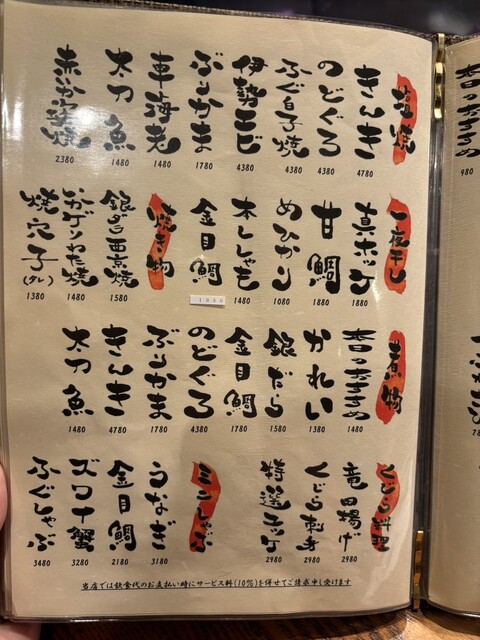 塩焼
きんき
4780
のどぐろ
4380
ふぐ白子焼
4380
伊勢エビ
4380
ぶりかま
1780
車海老
1480
太刀魚
1480
赤いか姿焼
2380
一夜干し
真ホッケ
1880
甘鯛
1880
めひかり
1080
本ししゃも
1480
金目鯛
焼き物
銀ダラ西京焼
1580
いかゲソわた焼
1480
焼穴子(タレ)
1380
煮物
本日のおすすめ
1480
かれい
1380
銀だら
1580
金目鯛
1780
のどぐろ
4380
ぶりかま
1780
きんき
4780
太刀魚
1480
くじら料理
竜田揚げ
2980
くじら刺身
2980
特選ユッケ
2980
ミニしゃぶ
うなぎ
3180
金目鯛
2180
ズワイ蟹
3280
ふぐしゃぶ
3480
当店では飲食代のお支払い時にサービス料(10%)を併せてご請求申し受けます
本日のおすすめ
980